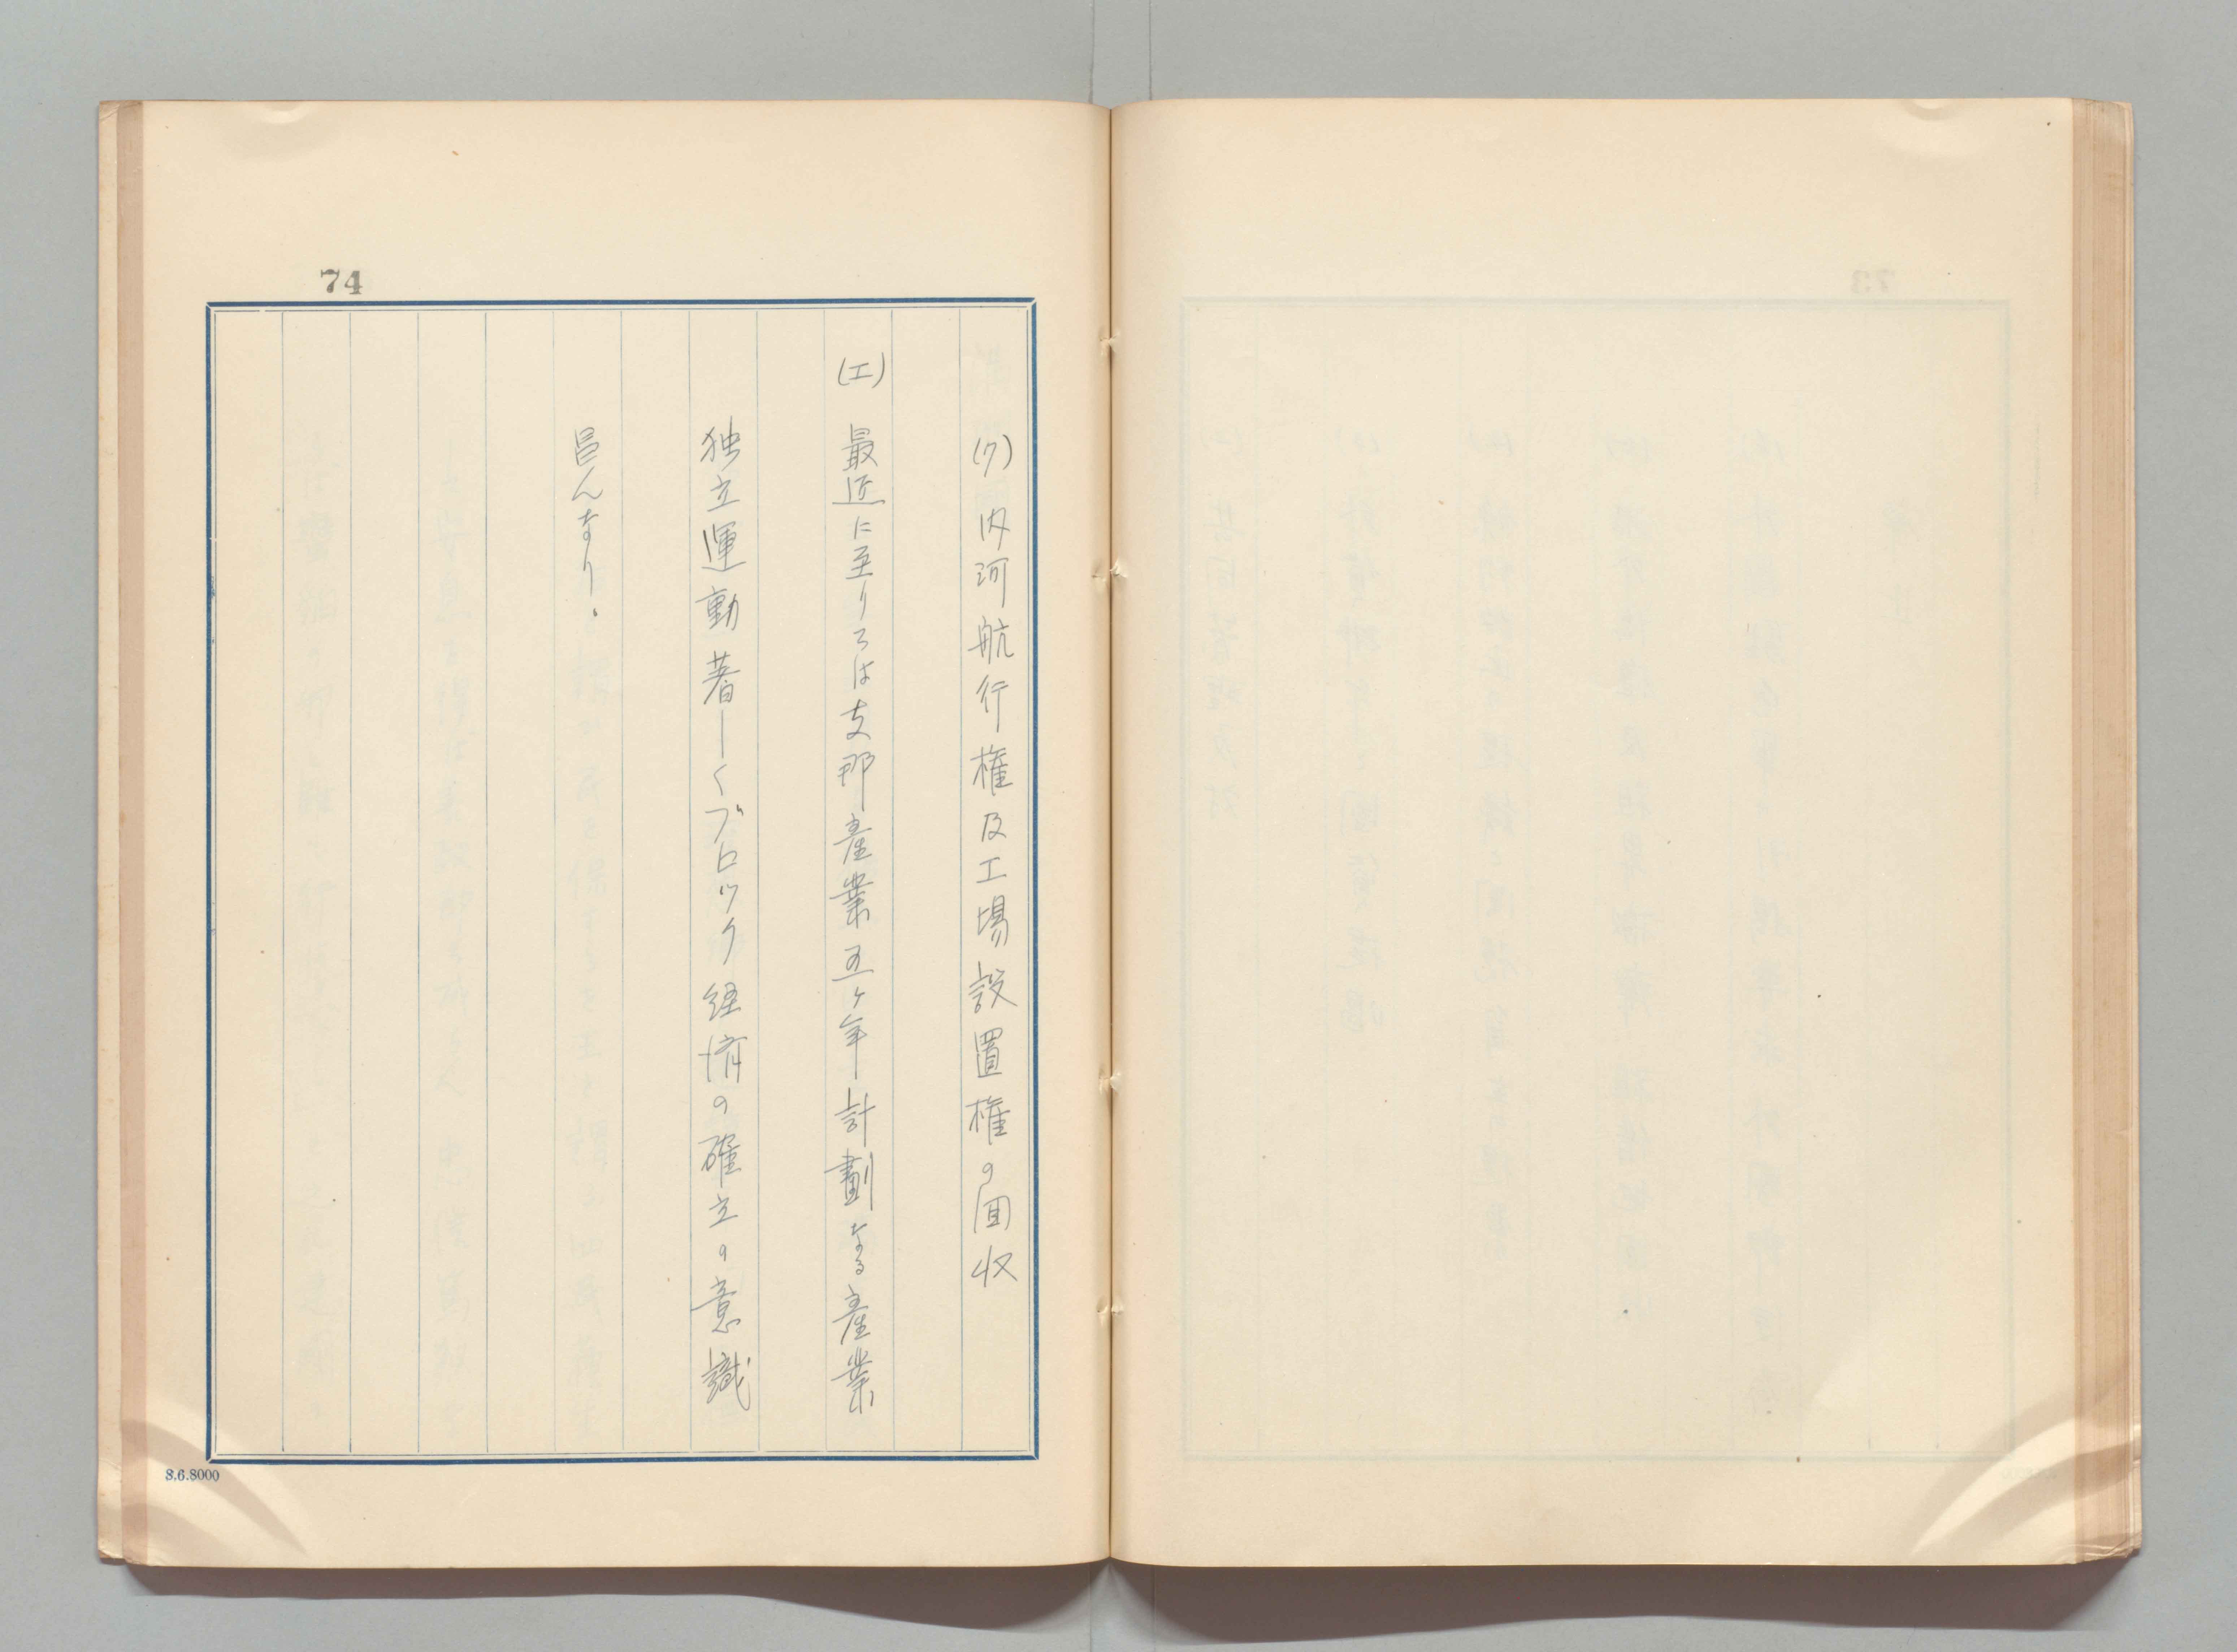 74
(7) 内河航行権及工場設置権の回収
(エ) 最近に至りては支那産業五ヶ年計劃なる産業
独立運動著しくブロック経済の確立の意識
昌んなり。
8.6.8000